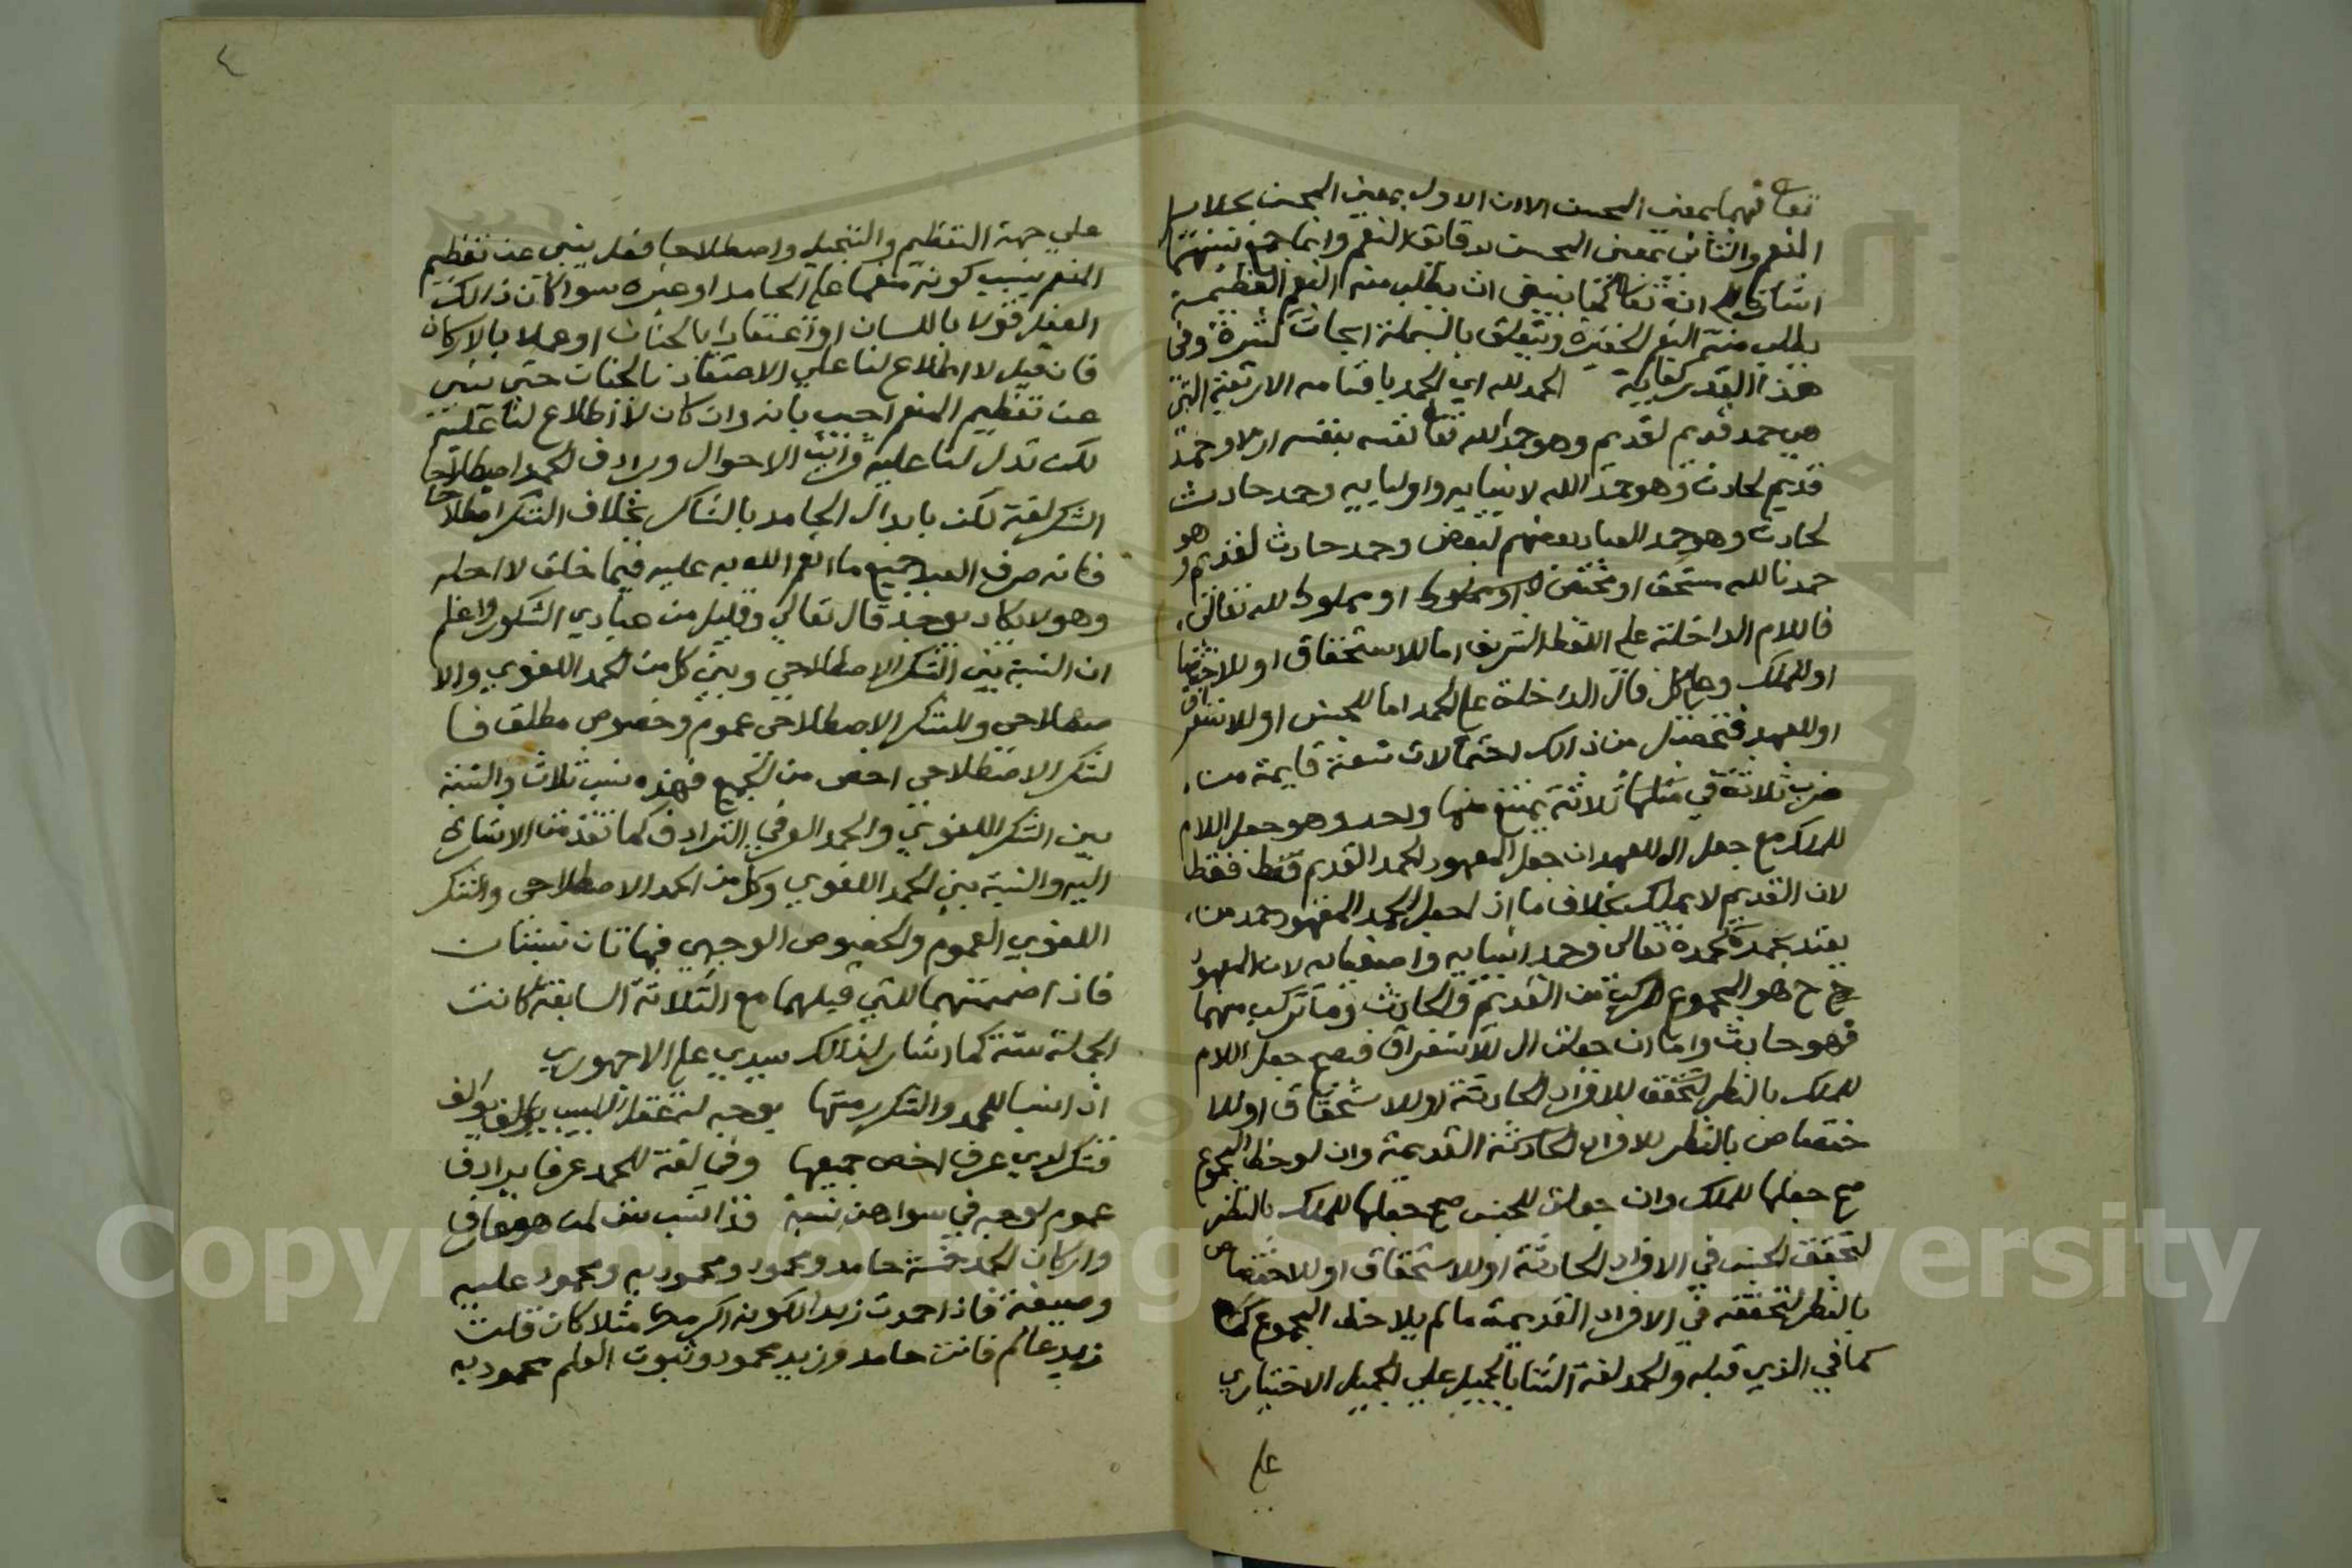 تعا فهما بمعنى المحسن الا ان الاول بمعنى المحسن بجلايل
النعم والثاني بمعنى المحسن بدقايق النعم وانما جمع بينهما
اشارة الى انه تعالى كما ينبغي ان يطلب منه النعم العظيمة
يطلب منه النعم الحقيرة ويتعلق بالبسملة ابحاث كثيرة وفي
هذا القدر كفاية الحمد لله اي الحمد باقسامه الاربعة التي
هي حمد قديم لقديم وهو حمد الله تعا نفسه بنفسه ازلا وحمد
قديم لحادث وهو حمد الله لانبيايه واوليايه وحمد حادث
لحادث وهو حمد العباد بعضهم لبعض وحمد حادث لقديم وهو
حمدنا لله مستحق او مختص او مملوك لله تعالى
فاللام الداخلة على اللفظ الشريف اما للاستحقاق او للاختصاص
او للملك وعلى كل فال الداخلة على الحمد اما للجنس او للاستغراق
او للعهد فتحصل من ذالك احتمالات تسعة قايمة من
ضرب ثلاثة في مثلها ثلاثة يمتنع منها واحد وهو جعل اللام
للملك مع جعل ال للعهد ان جعل المعهود الحمد القديم فقط
لان القديم لا يملك بخلاف ما اذا جعل الحمد المعهود حمد من
يعتد بحمده كحمده تعالى وحمد انبيايه واصفيايه لان المعهود
ح هو المجموع المركب من القديم والحادث وما تركب منهما
فهو حادث واما ان جعلت ال للاستغراق فيصح جعل اللام
للملك بالنظر لتحقق للافراد الحادثة او للاستحقاق او للا
ختصاص بالنظر للافراد الحادثة القديمة وان لوحظ المجموع
صح جعلها للملك وان جعلت للجنس صح جعلها للملك بالنظر
لتحقق الجنس في الافراد الحادثة او للاستحقاق او للاختصاص
بالنظر لتحققه في الافراد القديمة ما لم يلاحظ المجموع
كما في الذي قبله والحمد لغة الثنا بالجميل على الجميل الاختياري
على
٤
على جهة التعظيم والتبجيل واصطلاحا فعل ينبي عن تعظيم
المنعم بسبب كونه منعما على الحامد او غيره سوا كان ذالك
الفعل قولا باللسان او اعتقادا بالجنان او عملا بالاركان
فان قيل لا اطلاع لنا على الاعتقاد بالجنان حتى ينبي
عن تعظيم المنعم اجيب بانه وان كان لا اطلاع لنا عليه
لكن تدل لنا عليه قراين الاحوال ويرادف الحمد اصطلاحا
الشكر لغة لكن بابدال الحامد بالشاكر بخلاف الشكر اصطلاحا
فانه صرف العبد جميع ما انعم الله به عليه فيما خلق لاجله
وهو لا يكاد يوجد قال تعالى وقليل من عبادي الشكور واعلم
ان النسبة بين الشكر الاصطلاحي وبين كل من الحمد اللغوي والا
صطلاحي وللشكر الاصطلاحي عموم وخصوص مطلق فا
لشكر الاصطلاحي اخص من الجميع فهذه نسب ثلاث والنسبة
بين الشكر اللغوي والحمد العرفي الترادف كما تقدمت الاشارة
اليه والنسبة بين الحمد اللغوي وكل من الحمد الاصطلاحي والشكر
اللغوي العموم والخصوص الوجهي فهاتان نسبتان
فاذا ضممتهما للتي قبلهما مع الثلاثة السابقة كانت
الجملة ستة كما اشار لذالك سيدي علي الاجهوري
اذا نسبا للحمد والشكر رمتها بوجه له عقل اللبيب يوالف
فشكر لدي عرف اخص جميعها وفي لغة للحمد عرفا يرادف
عموم لوجه في سواهن نسبة فذا نسب ست لمن هو عارف
واركان الحمد خمسة حامد ومحمود ومحمود به ومحمود عليه
وصيغة فاذا حمدت زيدا لكونه اكرمك مثلا كان قلت
زيد عالم فانت حامد وزيد محمود وثبوت العلم محمود به